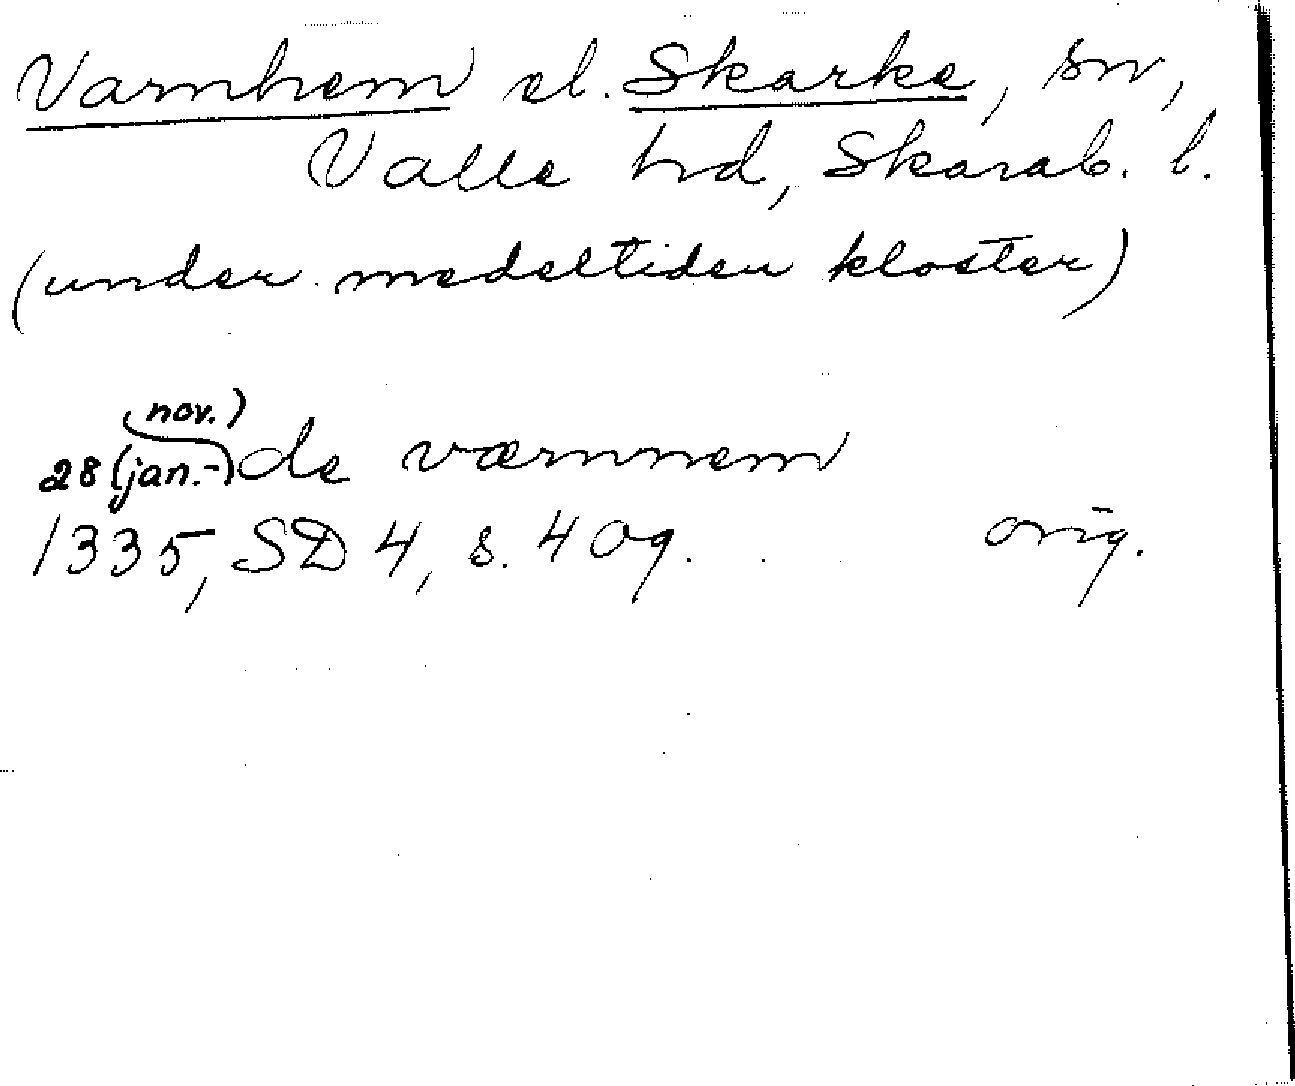 Varnhem el. Skarke, sn,
Valle hd, Skarab. l.
(under medeltiden kloster)
nov.)
28 (jan.-) de værnnem
1335, SD 4, s. 409. orig.